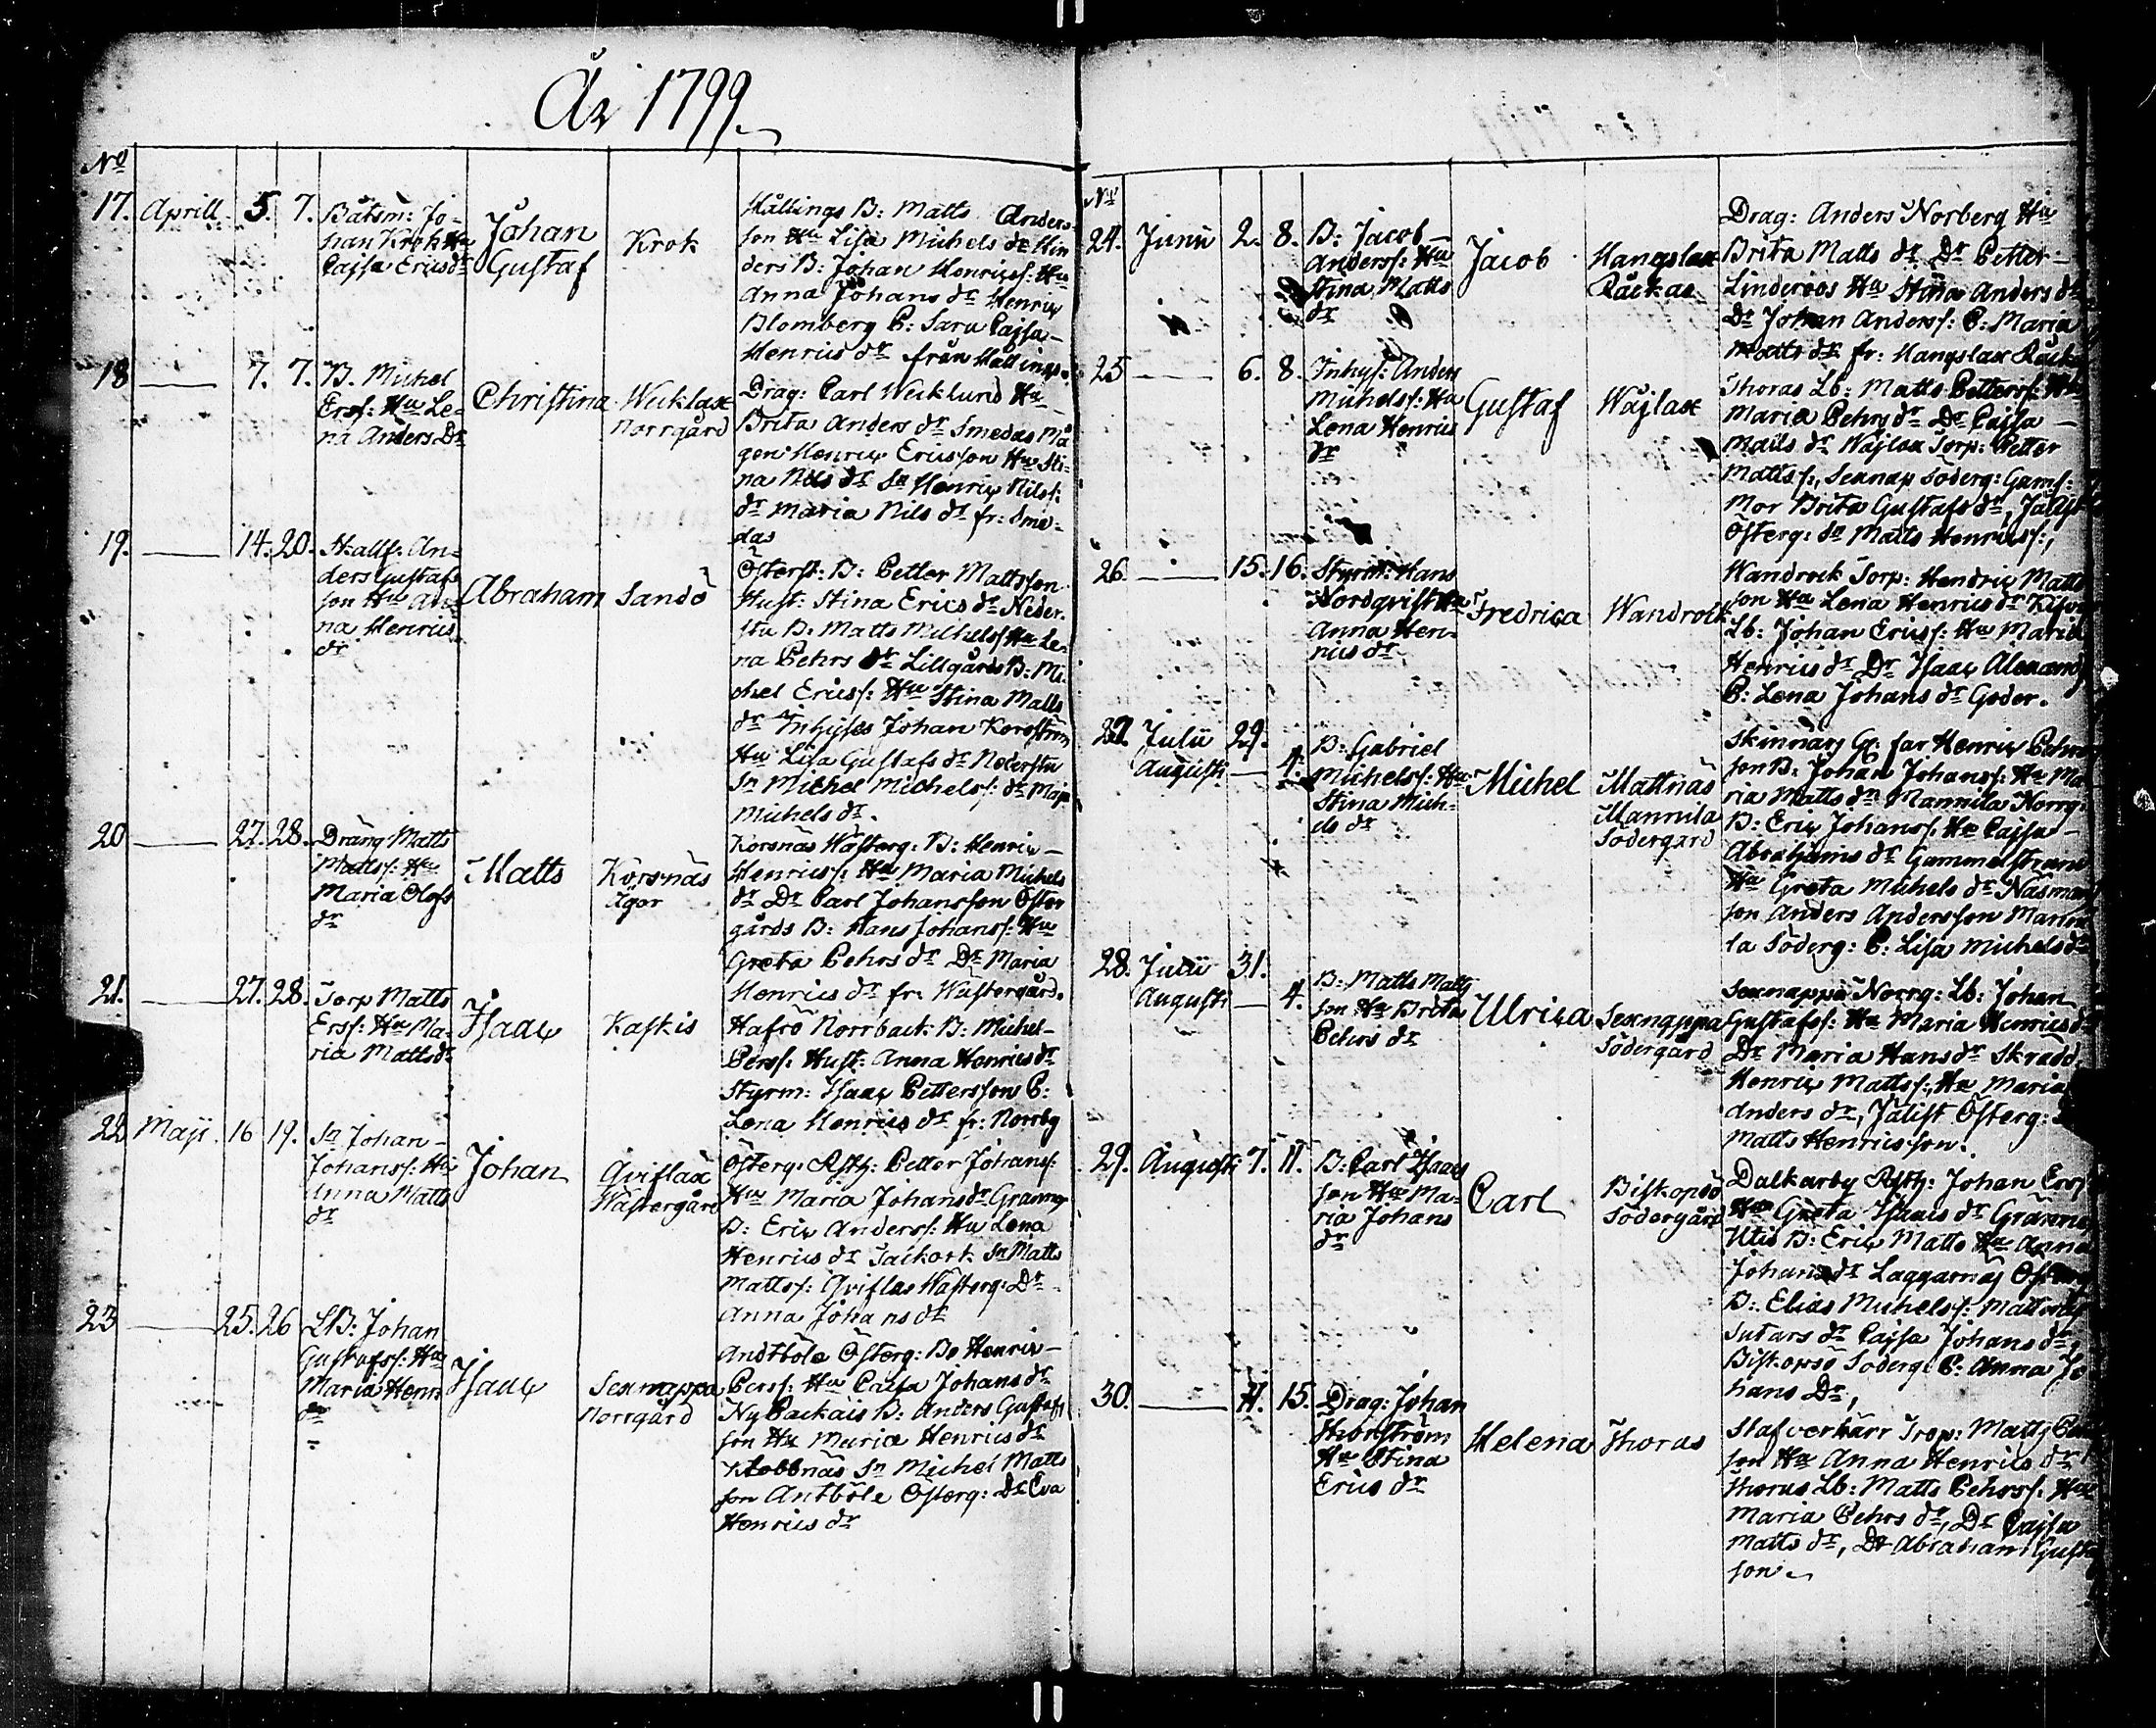 År 1799.
No
17. Aprill. 5. 7. Båtsm: Jo-
han Krok Hu
Cajsa Ericsdr
Johan
Gustaf
Krok
Hållings B: Matts Anders-
son Hu Lisa Michels dr Hin
ders B: Johan Henricss: Hu
Anna Johans dr Henric
Blomberg P: Sara Cajsa
Henrics dr från Hållings.
18 — 7. 7. B. Michel
Erss: Hu Le-
na Anders Dr
Christina
Wicklax
Norrgård
Drag: Carl Wecklund Hu
Brita Anders dr Smedas Må
gen Henric Ericsson Hu Sti-
na Nils dr Sn Henric Nilss:
dr Maria Nils dr fr: Sme-
das
19. — 14. 20. Hallf: An-
ders Gustafs
son Hu An
na Henrics
dr
Abraham
Sandö
Österst: B: Petter Mattsson
Hust: Stina Erics dr Neder-
stu B: Matts Michelss Hu Le-
na Pehrs dr Lillgårds B: Mi-
chel Ericss: Hu Stina Matts
dr Inhyses Johan Korsström
Hu Lisa Gustafs dr Nederstu
Sn Michel Michelss: dr Maja
Michels dr.
20 — 27. 28. Dräng Matts
Mattss: Hu
Maria Olofs
dr
Matts
Korsnäs
Ägor
Korsnäs Wästerg: B: Henric
Henricss: Hu Maria Michels
dr Dr Carl Johansson Öster
gårds B: Hans Johanss: Hu
Greta Pehrs dr Dr Maria
Henrics dr fr: Wästergård.
21. — 27. 28. Torp Matts
Erss: Hu Ma-
ria Mattsdr
Isaac
Kaskis
Hafrö Norrback: B: Michel
Perss: Hust: Anna Henricsdr
Styrm: Isaac Pettersson P:
Lena Henrics dr fr: Norrby
22 Maji. 16 19. Sn Johan
Johanss: Hu
Anna Matts
dr
Johan
Qviflax
Wästergård
Österg: Rsth: Petter Johanss:
Hu Maria Johansdr Granng
B: Eric Anderss: Hu Lena
Henrics dr Tackork Sn Matts
Mattss: Qviflax Wästerg: Dr
Anna Johans dr
23 — 25. 26 LB: Johan
Gustafss: Hu
Maria Henri
dr
Isaac
Sexnappa
Norrgård
Andtböle Österg: Bo Henric
Perss: Hu Caisa Johans dr
Nybackais B: Anders Gustafs
son Hu Maria Henrics dr
Klobbnäs Sn Michel Matts
son Antböle Österg: Dr Eva
Henrics dr
No
24. Junii 2. 8. B: Jacob
Anderss: Hu
Stina Matts
dr
Jacob
Hangslax
Räckas
Drag: Anders Norberg Hu
Brita Matts dr Dr Petter
Linderoos Hu Stina Anders dr
Dr Johan Anderss: P: Maria
Matts dr fr: Hangslax Räck
25 — 6. 8. Inhys: Anders
Michelss: Hu
Lena Henrics
dr
Gustaf
Wäjlax
Thoras Lb: Matts Petterss: Hu
Maria Pehrs dr Dr Cajsa
Matts dr Wäjlax Torp: Petter
Mattss:, Sexnap Söderg: Gaml:
Mor Brita Gustafs dr, Jälist
Österg: Sn Matts Henricss:,
26. — 15. 16. Styrm: Hans
Nordqvist Hu
Anna Hen-
rics dr
Fredrica
Wandrock
Wandrock Torp: Hendric Matts
son Hu Lena Henrics dr
Lb: Johan Ericss: Hu Maria
Henrics dr Dr Isaac Alexand
P: Lena Johans dr Goder.
27. Julii 29.
Augusti — 4. B: Gabriel
Michelss: Hu
Stina Mich-
els dr
Michel
Mattnäs
Mannila
Södergård
Skinnars G: far Henric Pehrs
son B: Johan Johanss: Hu Ma-
ria Matts dr Mannila Norrg:
B: Eric Johanss: Hu Cajsa
Abrahams dr Gammelstrand
Hu Greta Michels dr Näsman
son Anders Andersson Manni
la Söderg: P: Lisa Michelsdr
28. Julii 31.
Augusti — 4. B: Matts Matts
son Hu Brita
Pehrs dr
Ulrica
Sexnappa
Södergård
Sexnappa Norrg: Lb: Johan
Gustafss: Hu Maria Henricsdr
Dr Maria Hans dr Skrädd:
Henric Mattss: Hu Maria
Anders dr, Jälist Österg:
Matts Henricsson.
29. Augusti 7. 11. B: Carl Isaacs
son Hu Ma-
ria Johans
dr
Carl
Biskopsö
Södergård
Dalkarby Rsth: Johan Erss
Hu Greta Isaacs dr Granne
Utis B: Eric Matts Hu Anna
Johans dr Laggarnäs Österg
B: Elias Michelss: Mattnäs
Sutars dr Cajsa Johans dr,
Biskopsö Söderg: P: Anna Jo
hans Dr,
30. — 11. 15. Drag: Johan
Thorström
Hu Stina
Erics dr
Helena
Thoras
Stafverkärr Trop: Matts
son Hu Anna Henrics dr
Thoras Lb: Matts Pehrss: Hu
Maria Pehrs dr, Dr Cajsa
Matts dr, Dr Abraham Gusta
son